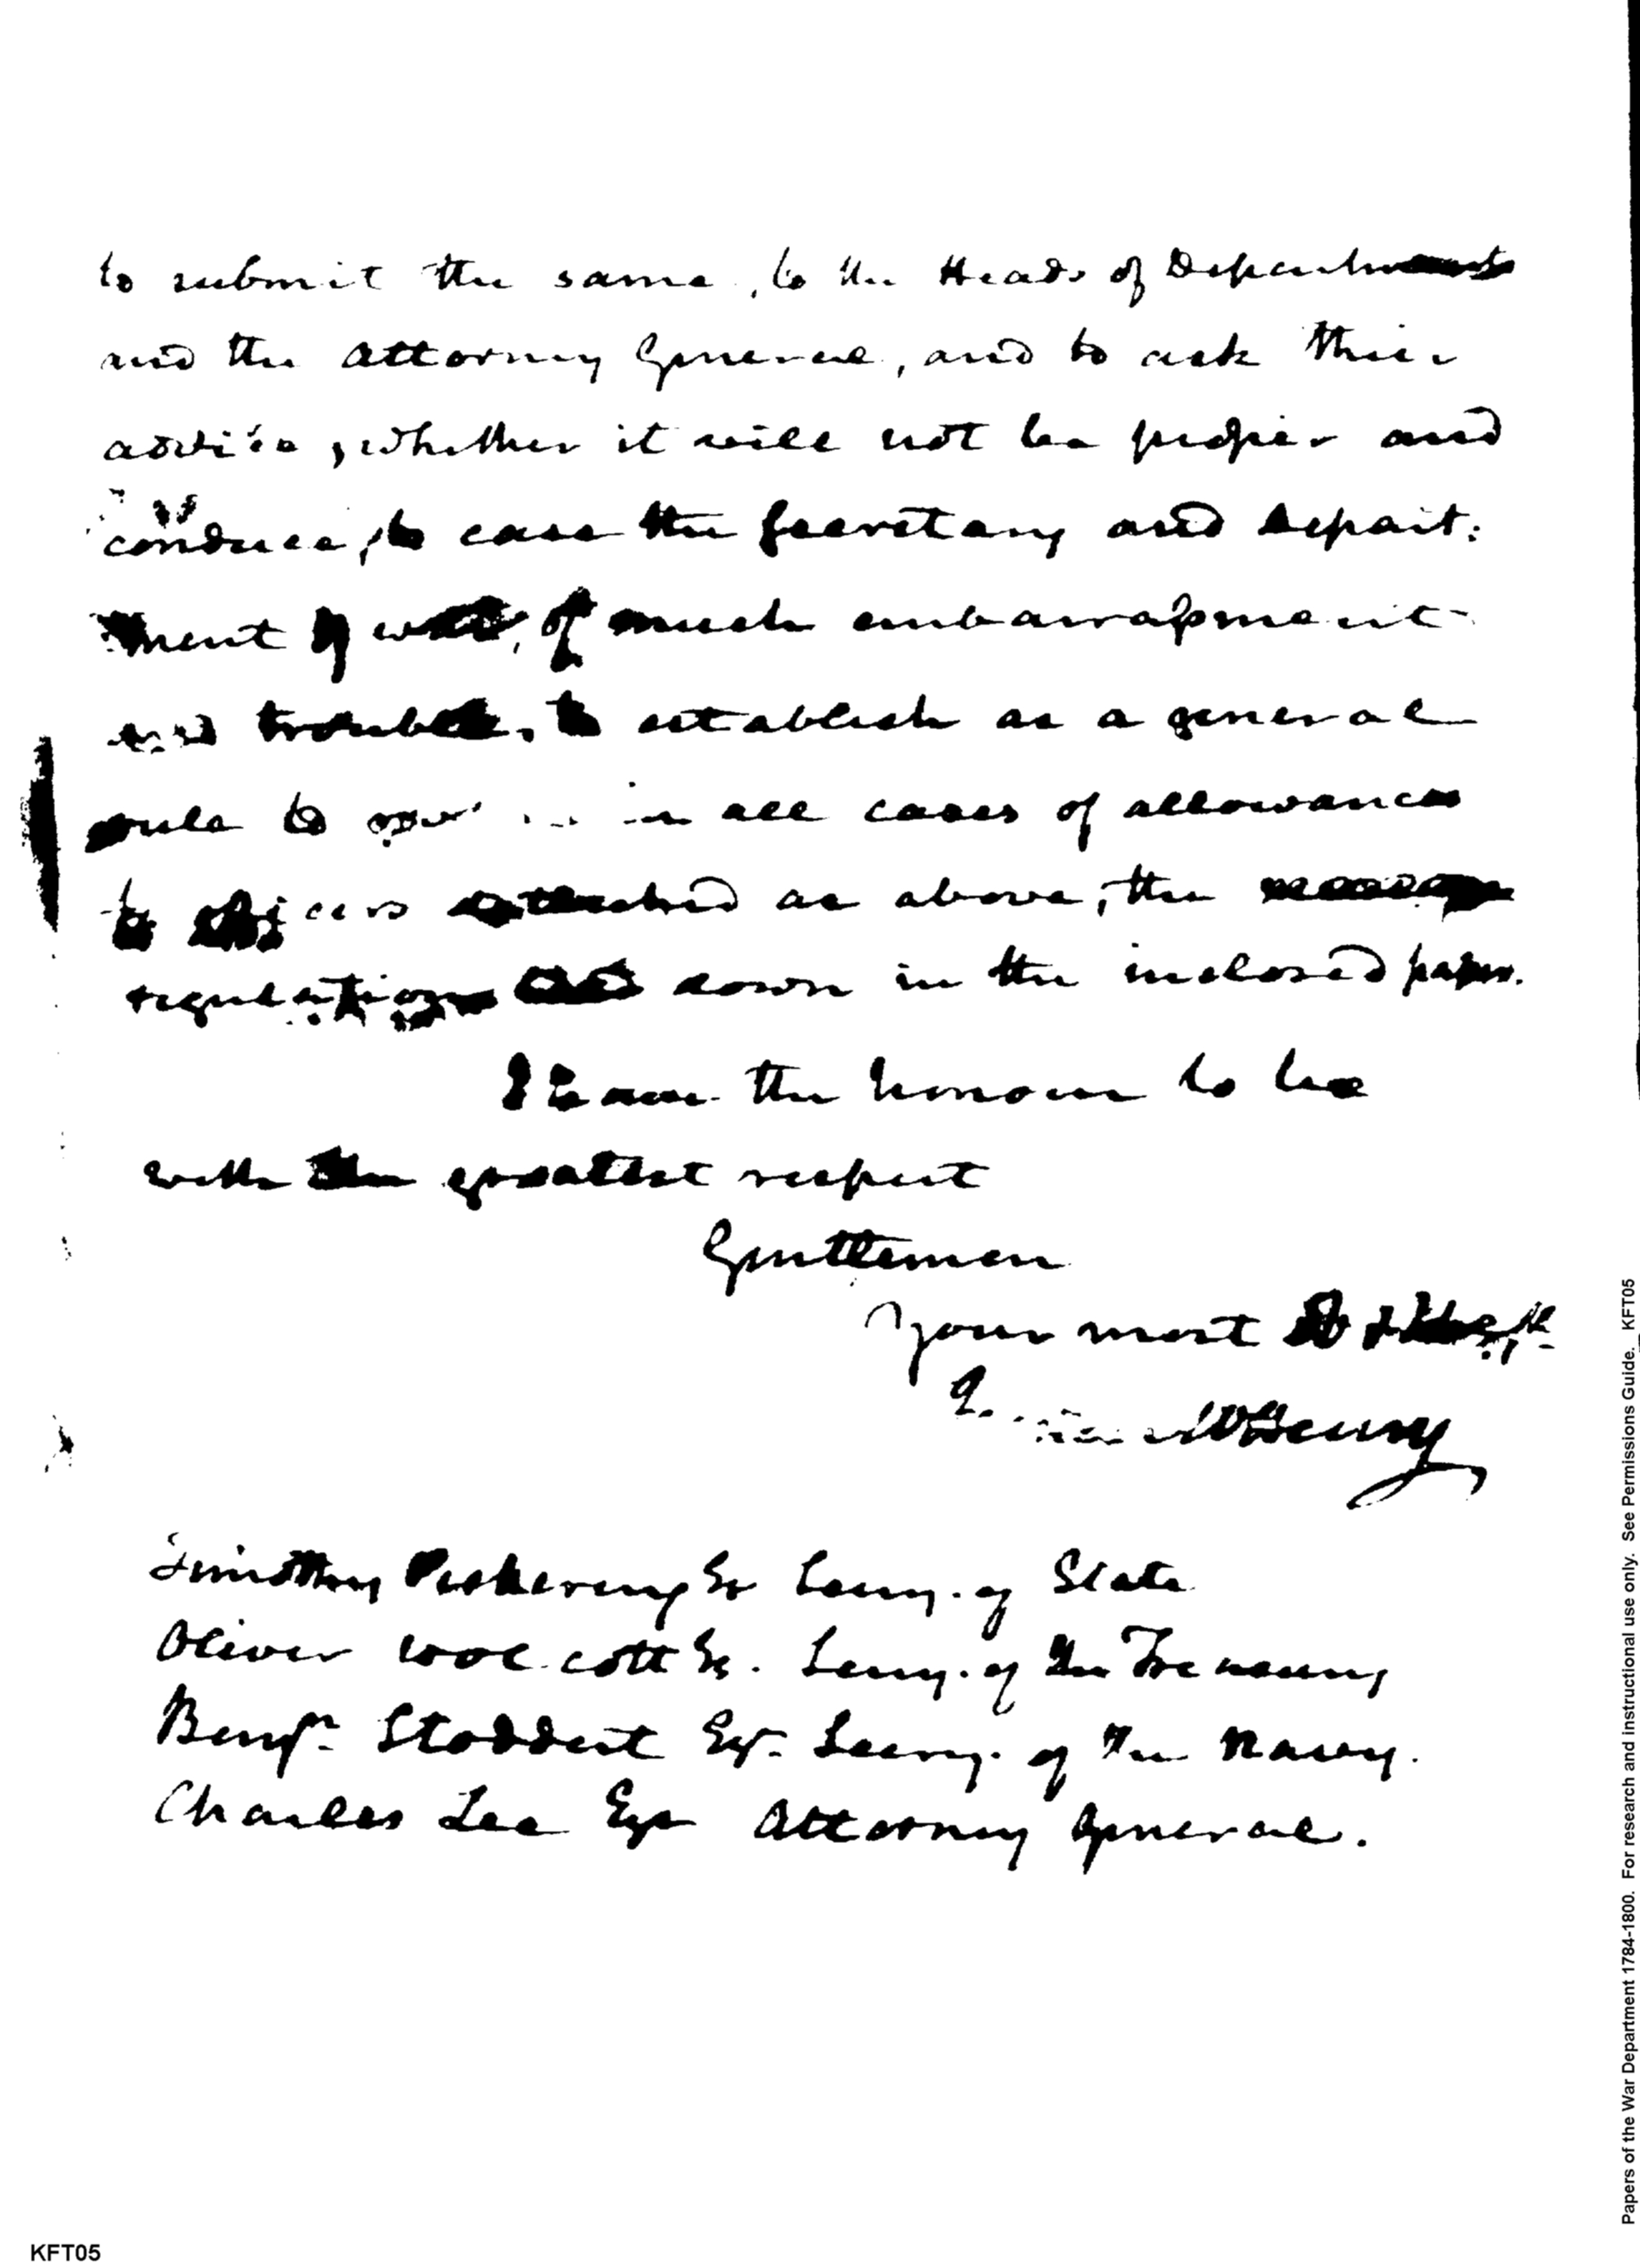 to submit the same, to the Heads of Departments
and the Attorney General, and to ask their
advice, whether it will not be proper and
conduce, to ease the Secretary and depart:
ment of war, of much embarrassment
and trouble, to establish as a general
rule to in all cases of allowances
to officers attached as above, the
regulations laid down in the inclosed paper.
I have the honour to be
with the greatest respect
Gentlemen
Your most Ob
James McHenry
Timothy Pickering Esr Secry. of State
Oliver Wolcott Esr. Secry. of the Treasury
Benjn. Stoddert Esqr. Secry. of the Navy.
Charles Lee Esqr Attorney General.
KFT05
Papers of the War Department 1784-1800. For research and instructional use only. See Permissions Guide. KFT05